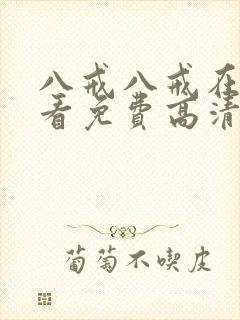 八戒八戒在
看免费高清
葡萄不喫皮